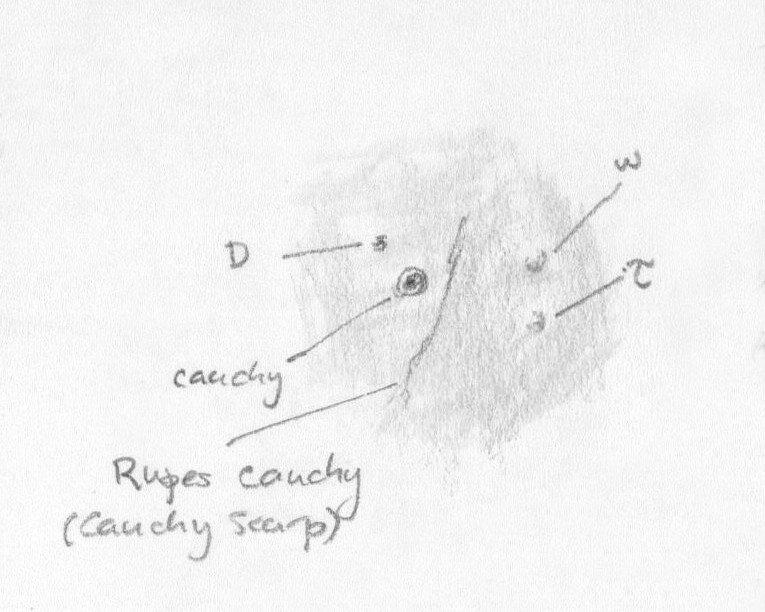 ω
D
τ
cauchy
Rupes Cauchy
(Cauchy Scarp)